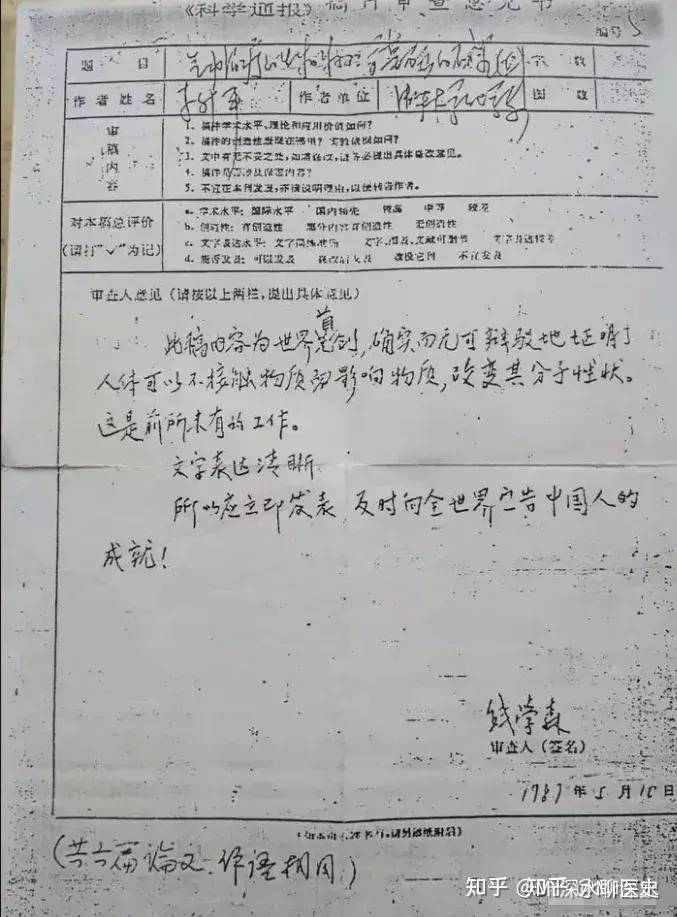 《科学通报》稿件审查意见书
编号 5
题 目 字 数
作者姓名 李升平 作者单位 清华大学 图 数
审稿内容
1、稿件学术水平、理论和应用价值如何？
2、稿件的创造性表现在哪里？实验依据如何？
3、文中有无不妥之处，如需修改，请务必提出具体修改意见。
4、稿件是否涉及保密内容？
5、不宜在本刊发表，亦请说明理由，以便转告作者。
对本稿总评价
(请打“√”为记)
a. 学术水平：国际水平 国内领先 较高 中等 较差
b. 创造性：有创造性 部分内容有创造性 无创造性
c. 文字表达水平：文字简练准确 文字、图表、文献可删节 文字表达较差
d. 能否发表：可以发表 修改后发表 改投它刊 不宜发表
审查人意见（请按以上两栏，提出具体意见）
此稿内容为世界首创，确实而无可辩驳地证明了
人体可以不接触物质而影响物质，改变其分子性状。
这是前所未有的工作。
文字表达清晰
所以应立即发表，及时向全世界宣告中国人的
成就！
钱学森
审查人（签名）
1987 年 5 月 10 日
(共六篇论文、评语相同)
知乎 @深水聊医史